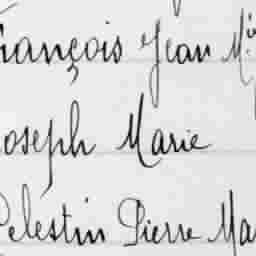 François Jean M
Joseph Marie
Celestin Pierre Ma